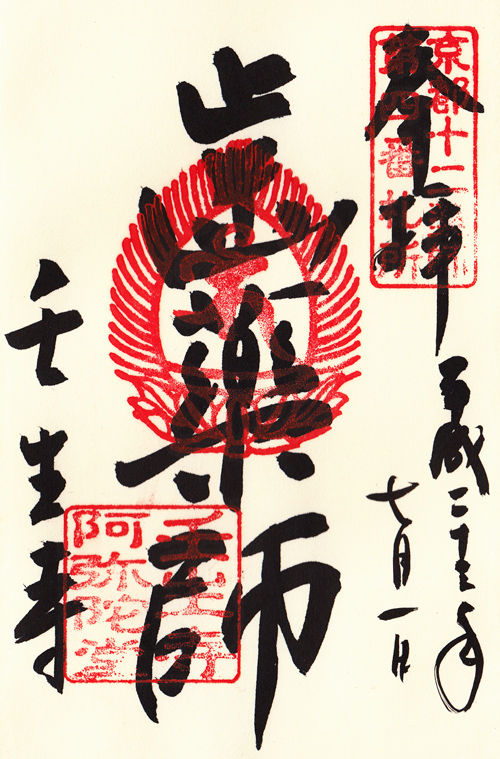 奉拝
京都十二薬師
第四番札所
平成二十五年
七月一日
歯薬師
壬生寺
壬生寺
阿弥陀堂